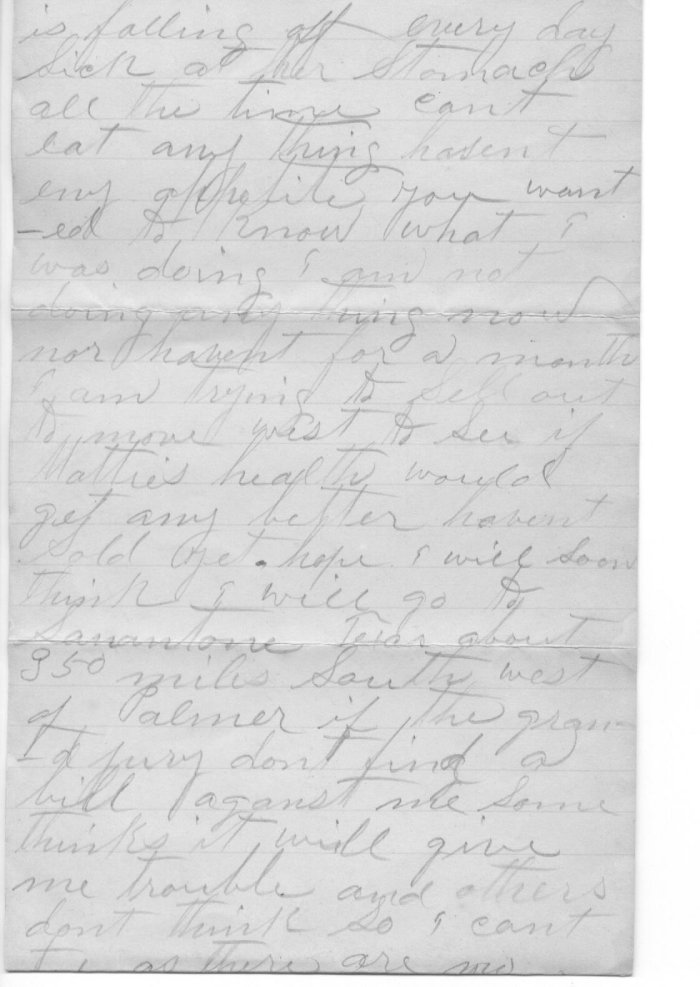 is falling off every day
Sick at her Stomach
all the time cant
eat any thing hasent
eny appetite you want
-ed to know what i
was doing i am not
doing any thing now
nor havent for a month
i am trying to sell out
to move west to see if
Matties health would
get any better havent
Sold yet. hope i will soon
think i will go to
Sanantone Texas about
350 miles South west
of Palmer if the gran
-d jury dont find a
bill aganst me some
thinks it will give
me trouble and others
dont think so i cant
as there are no